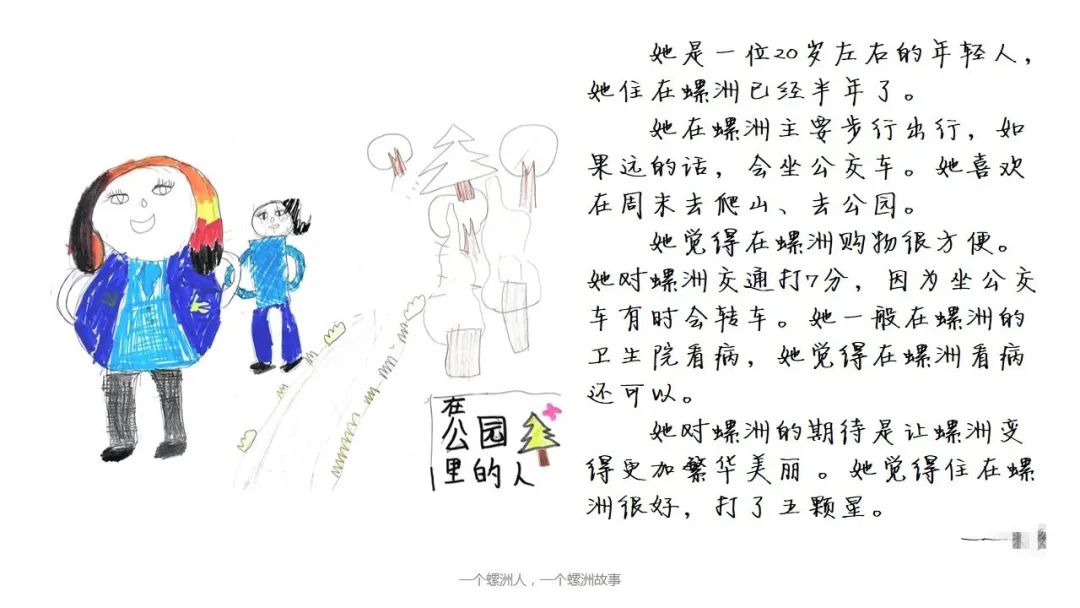 她是一位20岁左右的年轻人，
她住在螺洲已经半年了。
她在螺洲主要步行出行，如
果远的话，会坐公交车。她喜欢
在周末去爬山、去公园。
她觉得在螺洲购物很方便。
她对螺洲交通打7分，因为坐公交
车有时会转车。她一般在螺洲的
卫生院看病，她觉得在螺洲看病
还可以。
她对螺洲的期待是让螺洲变
得更加繁华美丽。她觉得住在螺
洲很好，打了五颗星。
在
公园
里的人
一个螺洲人，一个螺洲故事